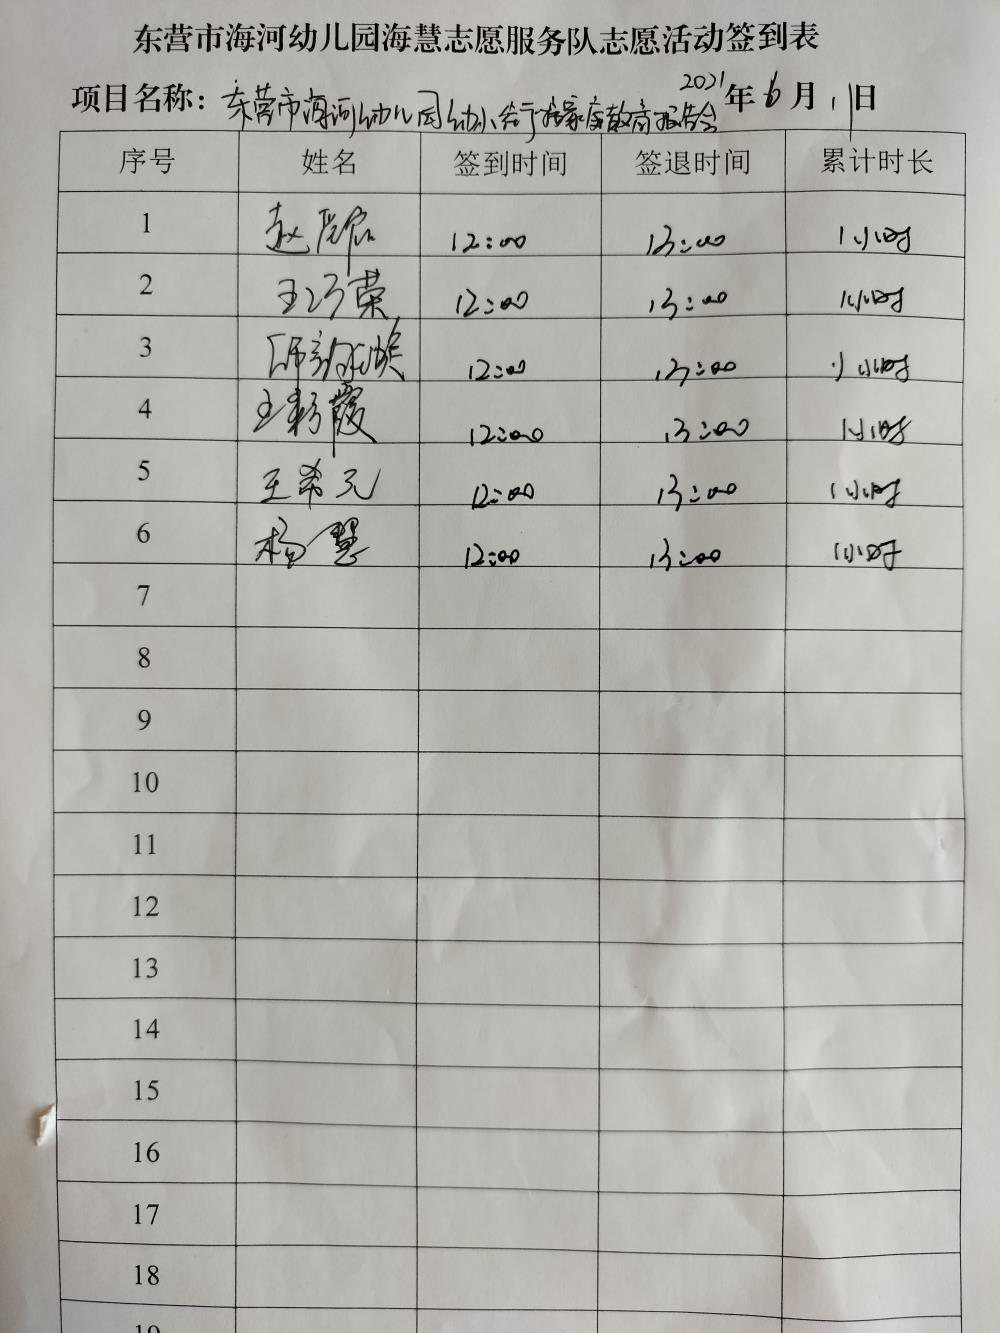 东营市海河幼儿园海慧志愿服务队志愿活动签到表
项目名称：东营市海河幼儿园幼小衔接家庭教育报告会 2021年6月11日
序号 姓名 签到时间 签退时间 累计时长
1 赵 12:00 13:00 1小时
2 王巧荣 12:00 13:00 1小时
3 12:00 13:00 1小时
4 王彩霞 12:00 13:00 1小时
5 王希元 12:00 13:00 1小时
6 杨慧 12:00 13:00 1小时
7
8
9
10
11
12
13
14
15
16
17
18
19